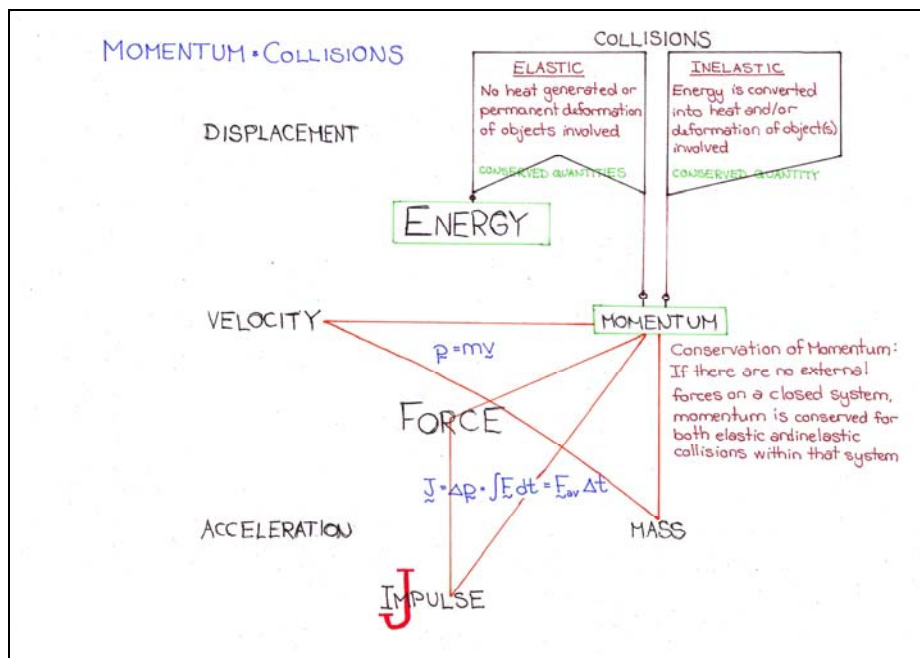 MOMENTUM & COLLISIONS
COLLISIONS
ELASTIC
No heat generated or
permanent deformation
of objects involved
CONSERVED QUANTITIES
INELASTIC
Energy is converted
into heat and/or
deformation of object(s)
involved
CONSERVED QUANTITY
DISPLACEMENT
ENERGY
VELOCITY
MOMENTUM
p = mv
Conservation of Momentum:
If there are no external
forces on a closed system,
momentum is conserved for
both elastic and inelastic
collisions within that system
FORCE
J = Δp = ∫F dt = F_av Δt
ACCELERATION
MASS
IMPULSE
J